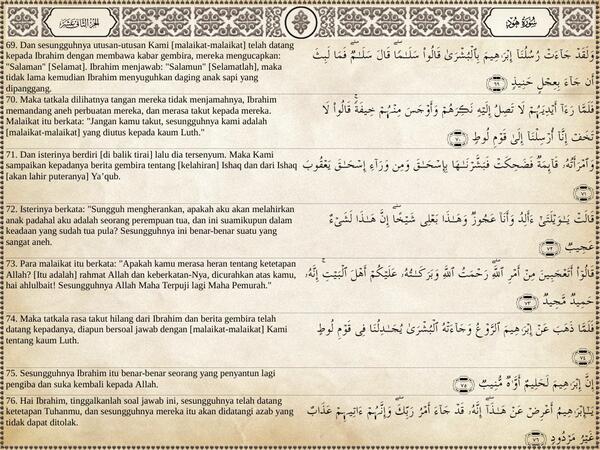 الجزء الثاني عشر
سورة هود
69. Dan sesungguhnya utusan-utusan Kami [malaikat-malaikat] telah datang
kepada Ibrahim dengan membawa kabar gembira, mereka mengucapkan:
"Salaman" [Selamat]. Ibrahim menjawab: "Salamun" [Selamatlah], maka
tidak lama kemudian Ibrahim menyuguhkan daging anak sapi yang
dipanggang.
وَلَقَدْ جَآءَتْ رُسُلُنَآ إِبْرَٰهِيمَ بِٱلْبُشْرَىٰ قَالُوا۟ سَلَٰمًا ۖ قَالَ سَلَٰمٌ ۖ فَمَا لَبِثَ
أَن جَآءَ بِعِجْلٍ حَنِيذٍ ٦٩
70. Maka tatkala dilihatnya tangan mereka tidak menjamahnya, Ibrahim
memandang aneh perbuatan mereka, dan merasa takut kepada mereka.
Malaikat itu berkata: "Jangan kamu takut, sesungguhnya kami adalah
[malaikat-malaikat] yang diutus kepada kaum Luth."
فَلَمَّا رَءَآ أَيْدِيَهُمْ لَا تَصِلُ إِلَيْهِ نَكِرَهُمْ وَأَوْجَسَ مِنْهُمْ خِيفَةً ۚ قَالُوا۟ لَا
تَخَفْ إِنَّآ أُرْسِلْنَآ إِلَىٰ قَوْمِ لُوطٍ ٧٠
71. Dan isterinya berdiri [di balik tirai] lalu dia tersenyum. Maka Kami
sampaikan kepadanya berita gembira tentang [kelahiran] Ishaq dan dari Ishaq
[akan lahir puteranya] Ya’qub.
وَٱمْرَأَتُهُۥ قَآئِمَةٌ فَضَحِكَتْ فَبَشَّرْنَٰهَا بِإِسْحَٰقَ وَمِن وَرَآءِ إِسْحَٰقَ يَعْقُوبَ
٧١
72. Isterinya berkata: "Sungguh mengherankan, apakah aku akan melahirkan
anak padahal aku adalah seorang perempuan tua, dan ini suamikupun dalam
keadaan yang sudah tua pula? Sesungguhnya ini benar-benar suatu yang
sangat aneh.
قَالَتْ يَٰوَيْلَتَىٰٓ ءَأَلِدُ وَأَنَا۠ عَجُوزٌ وَهَٰذَا بَعْلِى شَيْخًا ۖ إِنَّ هَٰذَا لَشَىْءٌ
عَجِيبٌ ٧٢
73. Para malaikat itu berkata: "Apakah kamu merasa heran tentang ketetapan
Allah? [Itu adalah] rahmat Allah dan keberkatan-Nya, dicurahkan atas kamu,
hai ahlulbait! Sesungguhnya Allah Maha Terpuji lagi Maha Pemurah."
قَالُوٓا۟ أَتَعْجَبِينَ مِنْ أَمْرِ ٱللَّهِ ۖ رَحْمَتُ ٱللَّهِ وَبَرَكَٰتُهُۥ عَلَيْكُمْ أَهْلَ ٱلْبَيْتِ ۚ إِنَّهُۥ
حَمِيدٌ مَّجِيدٌ ٧٣
74. Maka tatkala rasa takut hilang dari Ibrahim dan berita gembira telah
datang kepadanya, diapun bersoal jawab dengan [malaikat-malaikat] Kami
tentang kaum Luth.
فَلَمَّا ذَهَبَ عَنْ إِبْرَٰهِيمَ ٱلرَّوْعُ وَجَآءَتْهُ ٱلْبُشْرَىٰ يُجَٰدِلُنَا فِى قَوْمِ لُوطٍ
٧٤
75. Sesungguhnya Ibrahim itu benar-benar seorang yang penyantun lagi
pengiba dan suka kembali kepada Allah.
إِنَّ إِبْرَٰهِيمَ لَحَلِيمٌ أَوَّٰهٌ مُّنِيبٌ ٧٥
76. Hai Ibrahim, tinggalkanlah soal jawab ini, sesungguhnya telah datang
ketetapan Tuhanmu, dan sesungguhnya mereka itu akan didatangi azab yang
tidak dapat ditolak.
يَٰٓإِبْرَٰهِيمُ أَعْرِضْ عَنْ هَٰذَآ ۖ إِنَّهُۥ قَدْ جَآءَ أَمْرُ رَبِّكَ ۖ وَإِنَّهُمْ ءَاتِيهِمْ عَذَابٌ
غَيْرُ مَرْدُودٍ ٧٦